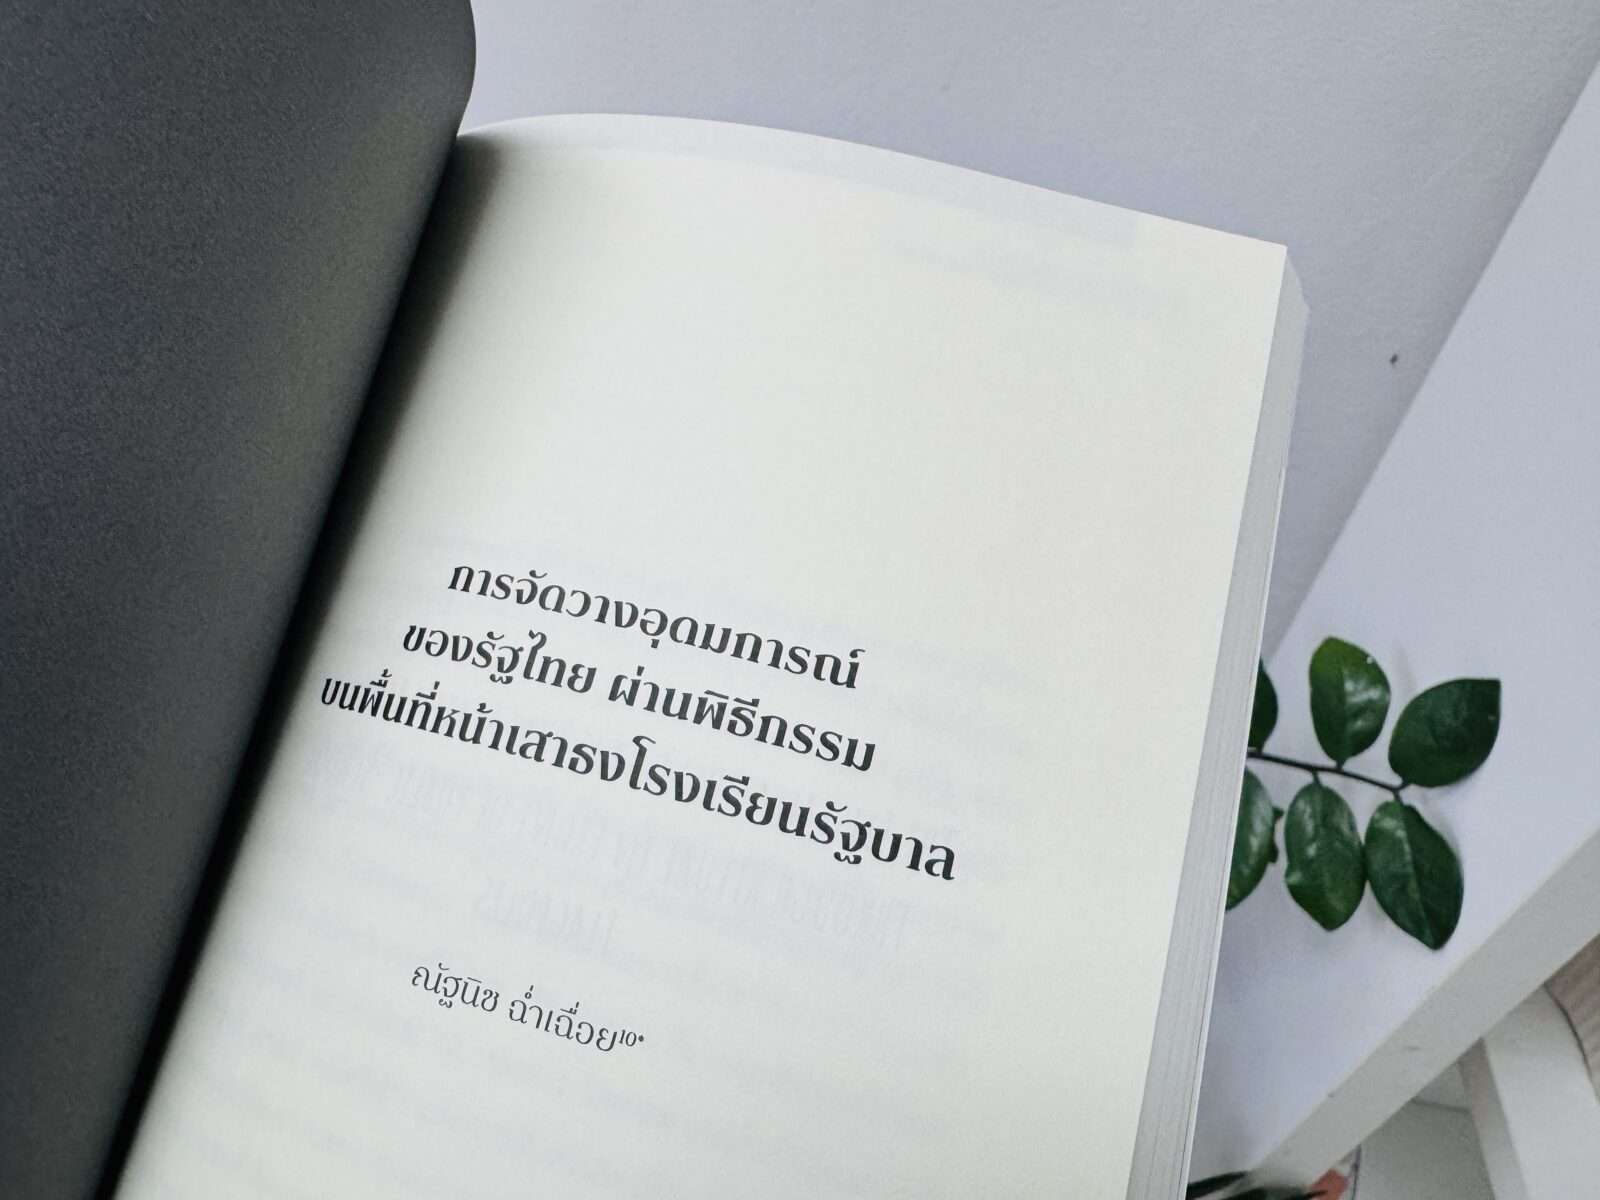 การจัดวางอุดมการณ์
ของรัฐไทย ผ่านพิธีกรรม
บนพื้นที่หน้าเสาธงโรงเรียนรัฐบาล
ณัฐนิช ฉ่ำเฉื่อย¹⁰*